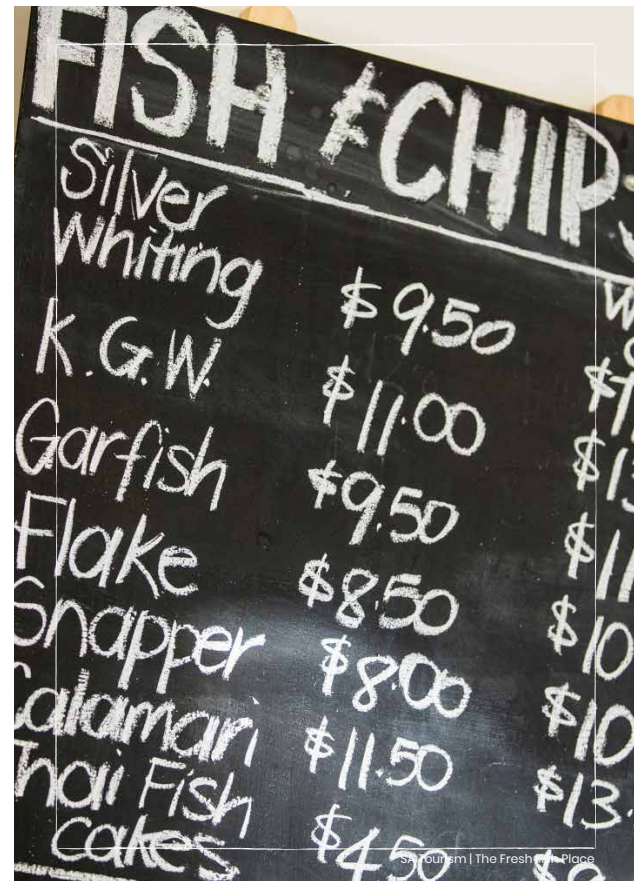 FISH & CHIP
Silver
Whiting $9.50
K.G.W. $11.00
Garfish $9.50
Flake $8.50
Snapper $8.00 $10
Calamari $11.50 $13.
Thai Fish
cakes $4.50
SA Tourism | The Fresh Fish Place